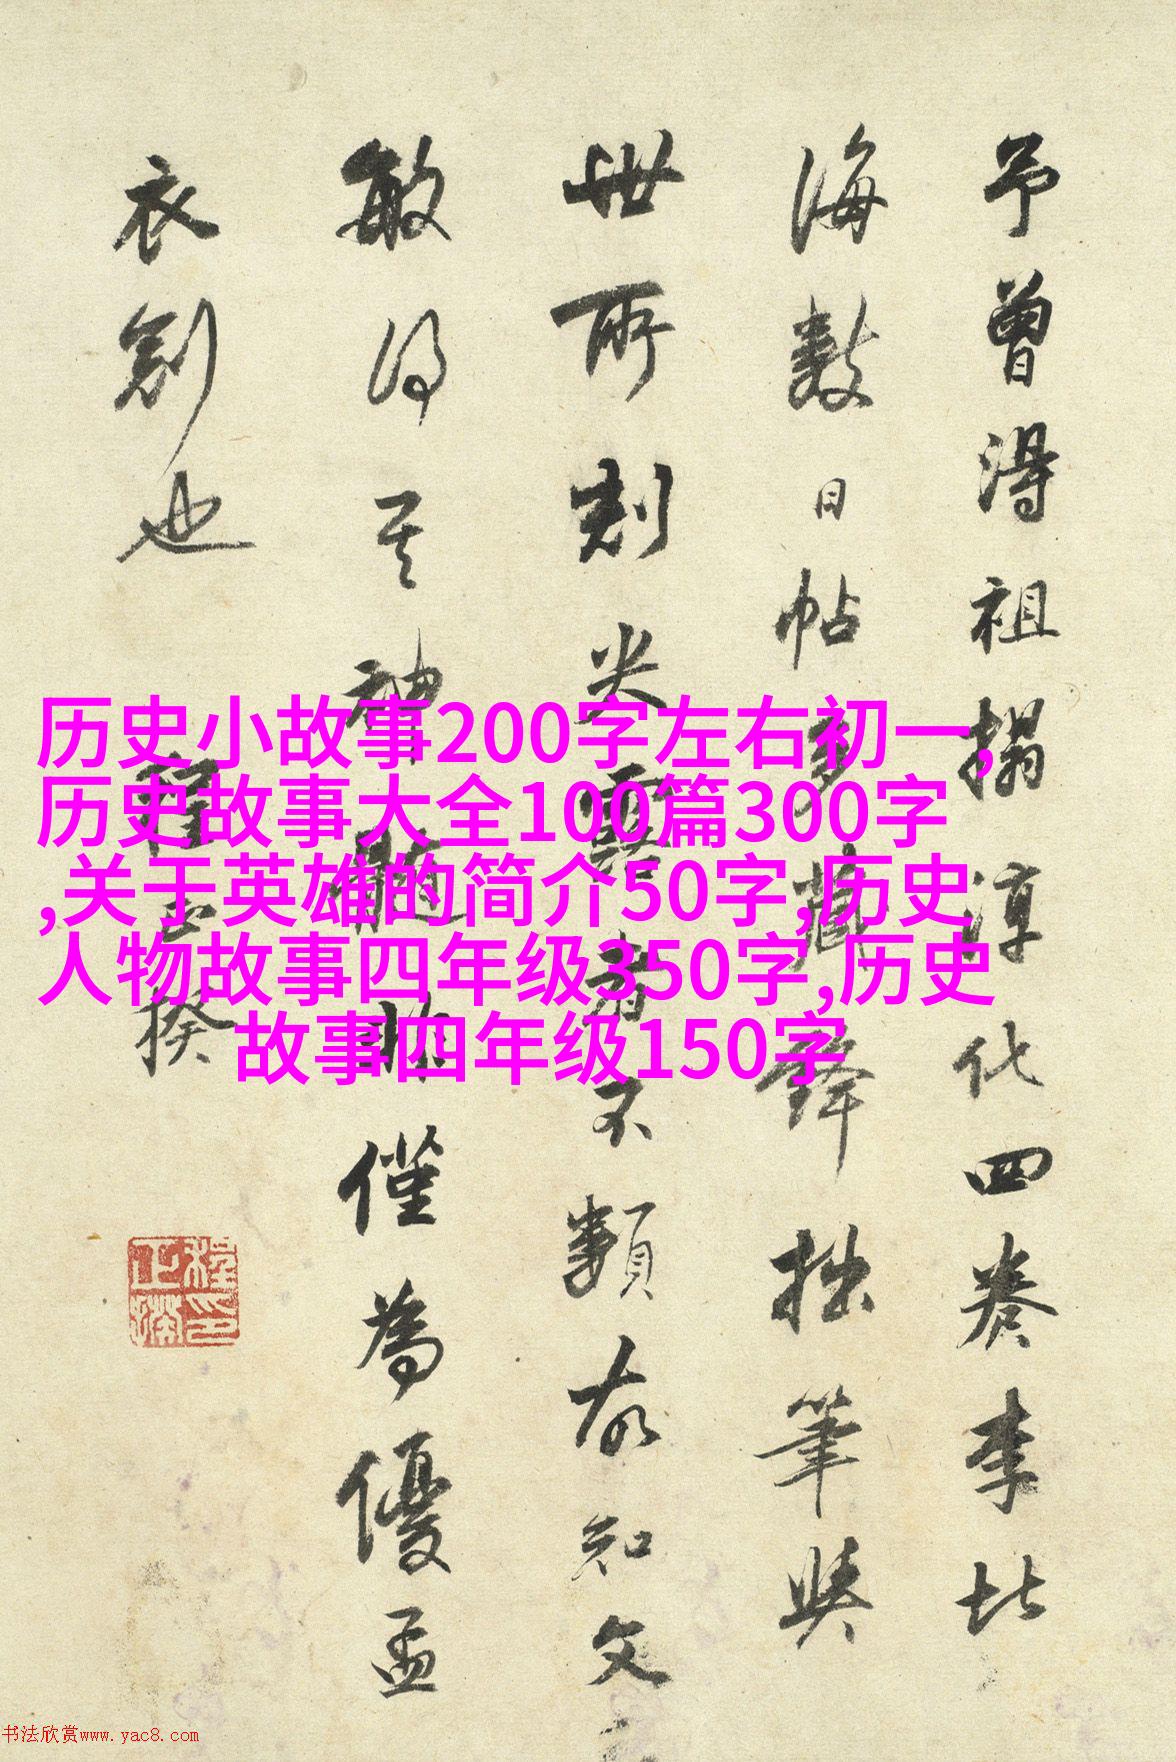 予曾得祖搨淳化四卷李北
海數日帖多藏鋒拙筆與
世所刻尖露者不類故知文
敏得其神髓非僅為優孟
衣也
程正揆
历史小故事200字左右初一,
历史故事大全100篇300字
,关于英雄的简介50字,历史
人物故事四年级350字,历史
故事四年级150字
书法欣赏www.yac8.com